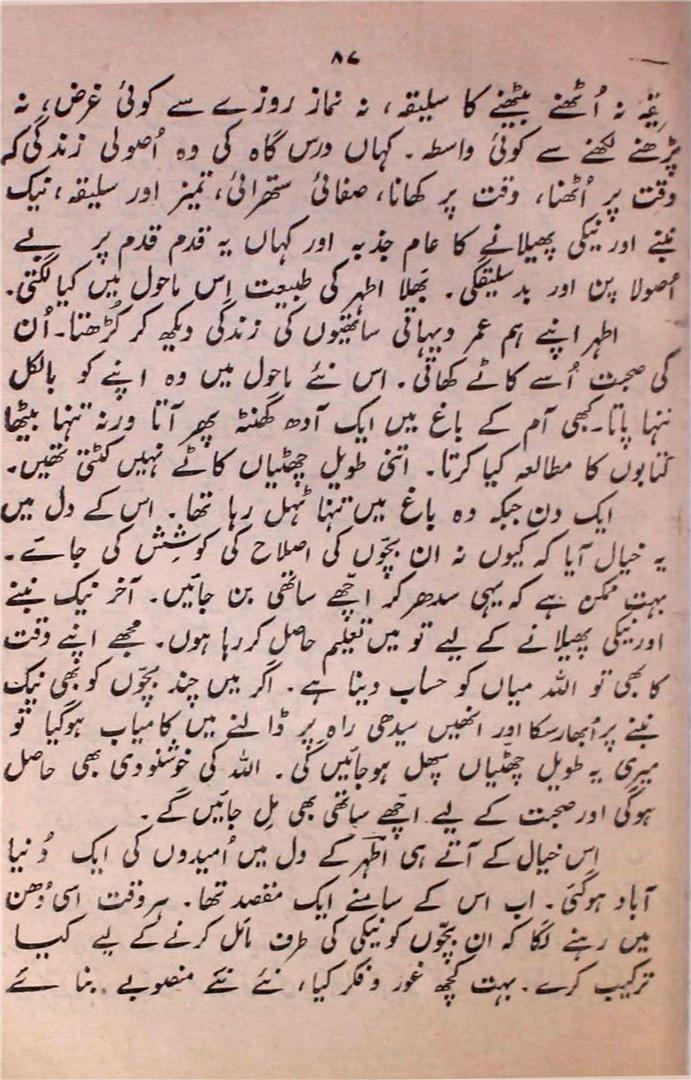 ۸۷
یقہ نہ اُٹھنے بیٹھنے کا سلیقہ، نہ نماز روزے سے کوئی غرض، نہ
پڑھنے لکھنے سے کوئی واسطہ۔ کہاں درس گاہ کی وہ اُصولی زندگی کہ
وقت پر اُٹھنا، وقت پر کھانا، صفائی ستھرائی، تمیز اور سلیقہ، نیک
بننے اور نیکی پھیلانے کا عام جذبہ اور کہاں یہ قدم قدم پر بے
اُصولا پن اور بدسلیقگی۔ بَھلا اطہر کی طبیعت اس ماحول میں کیا لگتی۔
اطہر اپنے ہم عمر دیہاتی ساتھیوں کی زندگی دیکھ کر کُڑھتا۔ اُن
کی صحبت اُسے کاٹے کھاتی۔ اس نئے ماحول میں وہ اپنے کو بالکل
تنہا پاتا۔ کبھی آم کے باغ میں ایک آدھ گھنٹہ پھر آتا ورنہ تنہا بیٹھا
کتابوں کا مطالعہ کیا کرتا۔ اتنی طویل چھٹیاں کاٹے نہیں کٹتی تھیں۔
ایک دن جبکہ وہ باغ میں تنہا ٹہل رہا تھا۔ اس کے دل میں
یہ خیال آیا کہ کیوں نہ ان بچّوں کی اصلاح کی کوشش کی جائے۔
بہت ممکن ہے کہ یہی سدھر کر اچھے ساتھی بن جائیں۔ آخر نیک بننے
اور نیکی پھیلانے کے لیے تو میں تعلیم حاصل کر رہا ہوں۔ مجھے اپنے وقت
کا بھی تو اللہ میاں کو حساب دینا ہے۔ اگر میں چند بچّوں کو بھی نیک
بننے پر اُبھار سکا اور انھیں سیدھی راہ پر ڈالنے میں کامیاب ہوگیا تو
میری یہ طویل چھٹیاں سپھل ہوجائیں گی۔ اللہ کی خوشنودی بھی حاصل
ہوگی اور صحبت کے لیے اچھے ساتھی بھی مِل جائیں گے۔
اِس خیال کے آتے ہی اطہر کے دل میں اُمیدوں کی ایک دُنیا
آباد ہوگئی۔ اب اس کے سامنے ایک مقصد تھا۔ ہر وقت اسی دُھن
میں رہنے لگا کہ ان بچّوں کو نیکی کی طرف مائل کرنے کے لیے کیا
ترکیب کرے۔ بہت کچھ غور و فکر کیا، نئے نئے منصوبے بنائے